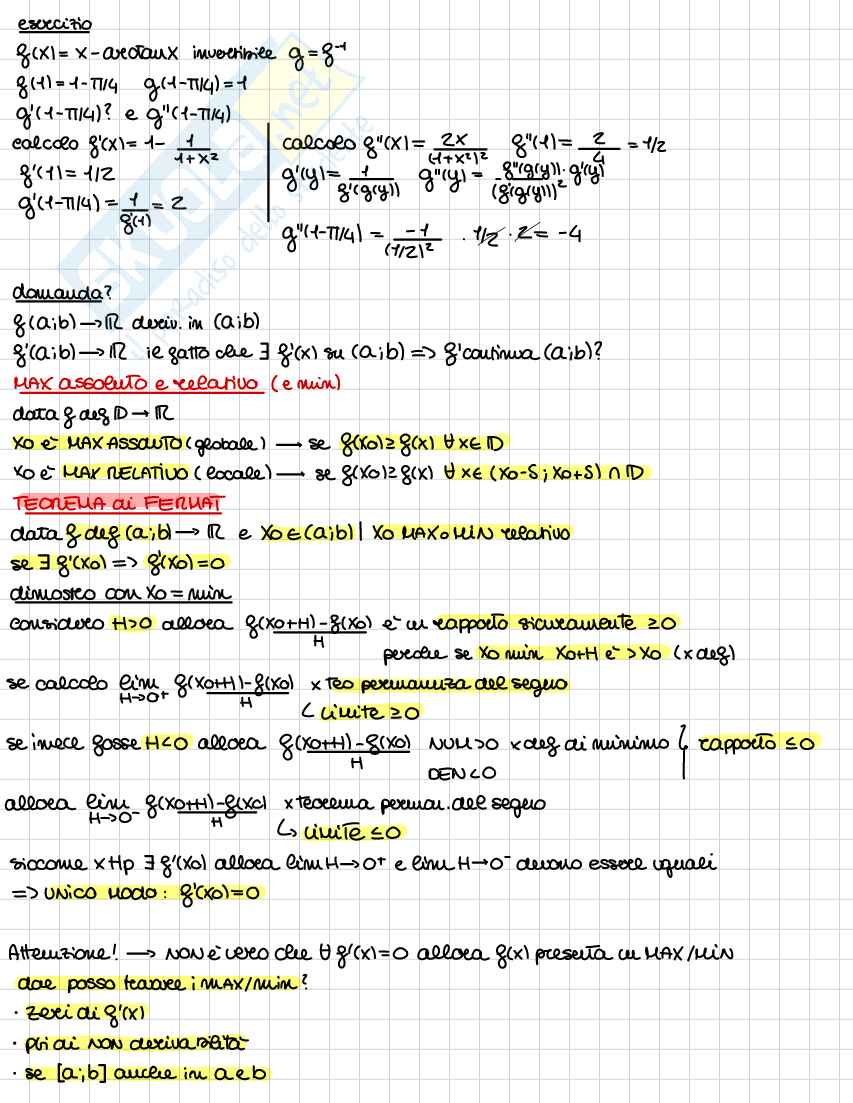 esercizio
f(x) = x - arctanx invertibile g = f⁻¹
f(1) = 1 - π/4 g(1-π/4) = 1
g'(1-π/4)? e g"(1-π/4)
calcolo f'(x) = 1 - 1/(1+x²)
f'(1) = 1/2
g'(1-π/4) = 1/f'(1) = 2
calcolo f"(x) = 2x/(1+x²)² f"(1) = 2/4 = 1/2
g'(y) = 1/f'(g(y)) g"(y) = - f"(g(y))·g'(y)/(f'(g(y)))²
g"(1-π/4) = -1/(1/2)² · 1/2 · 2 = -4
domanda?
f(a;b) → ℝ deriv. in (a;b)
f'(a;b) → ℝ il fatto che ∃ f'(x) su (a;b) => f' continua (a;b)?
MAX assoluto e relativo (e min)
data f def D → ℝ
xo è MAX ASSOLUTO (globale) → se f(xo) ≥ f(x) ∀x∈D
xo è MAX RELATIVO (locale) → se f(xo) ≥ f(x) ∀x∈(xo-δ; xo+δ) ∩ D
TEOREMA di FERMAT
data f def (a;b) → ℝ e xo∈(a;b) | xo MAX o MIN relativo
se ∃ f'(xo) => f'(xo) = 0
dimostro con xo = min
considero H>0 allora f(xo+H)-f(xo)/H è un rapporto sicuramente ≥0
perche se xo min xo+H è > xo (x def)
se calcolo lim H→0⁺ f(xo+H)-f(xo)/H x teo permanenza del segno
↳ limite ≥0
se invece fosse H<0 allora f(xo+H)-f(xo)/H NUM>0 x def di minimo } rapporto ≤0
DEN<0
allora lim H→0⁻ f(xo+H)-f(xo)/H x teorema perman. del segno
↳ limite ≤0
siccome x Hp ∃ f'(xo) allora lim H→0⁺ e lim H→0⁻ devono essere uguali
=> unico modo: f'(xo) = 0
Attenzione! → NON è vero che ∀ f'(x)=0 allora f(x) presenta un MAX/MIN
dove posso trovare i MAX/min?
· zeri di f'(x)
· pti di NON derivabilità
· se [a;b] anche in a e b
SKUOLA.net
il paradiso dello studente